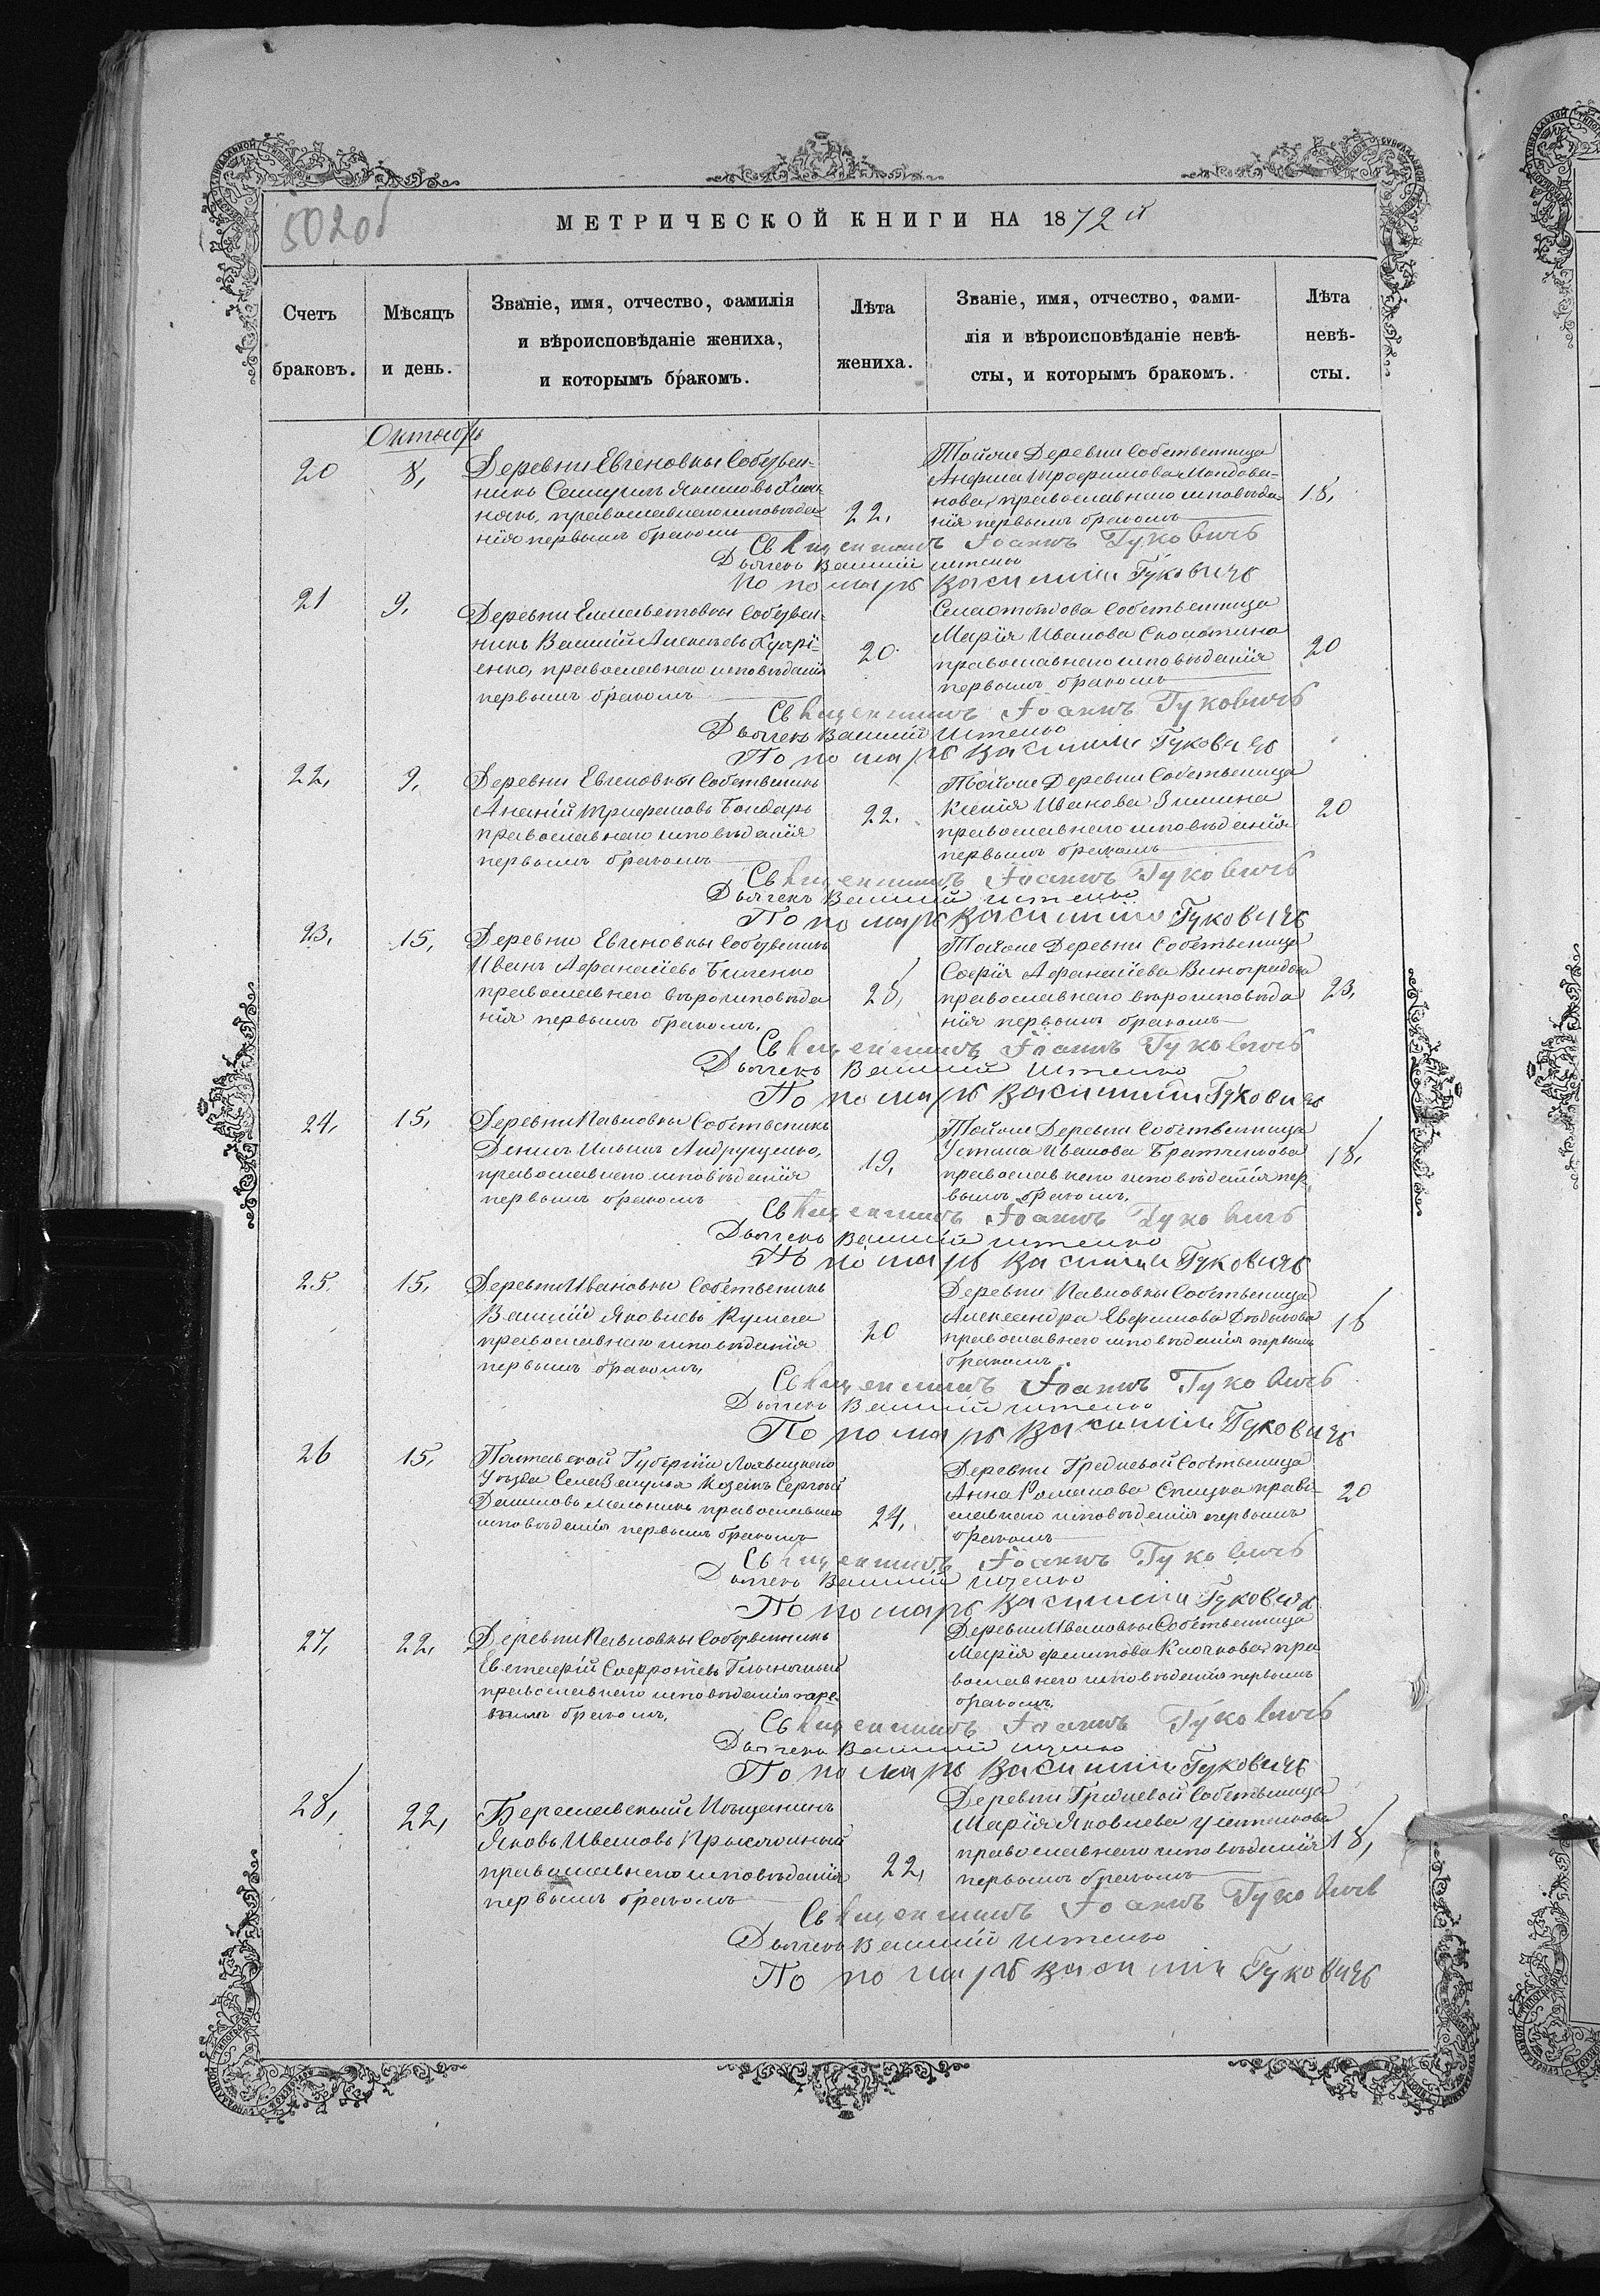 502об
МЕТРИЧЕСКОЙ КНИГИ НА 1872й
Счетъ браковъ.
Мѣсяцъ и день.
Званіе, имя, отчество, фамилія
и вѣроисповѣданіе жениха,
и которымъ бракомъ.
Лѣта жениха.
Званіе, имя, отчество, фами-
лія и вѣроисповѣданіе невѣ-
сты, и которымъ бракомъ.
Лѣта невѣ-
сты.
Октябрь
20
8,
Деревни Евгеновки Собствен-
никъ Якимовъ
православнаго исповѣда-
нія первымъ бракомъ
22,
Тойже Деревни Собственница
Трофимова
православнаго исповѣда-
нія первымъ бракомъ
18,
Священникъ Іоаннъ Гуковичъ
Дьячекъ Василій
Пономарь Василій Гуковичъ
21
9,
Деревни Елисаветовки Собствен-
никъ Василій Алексѣевъ
православнаго исповѣданія
первымъ бракомъ
20
Собственница
Марія Иванова
православнаго исповѣданія
первымъ бракомъ
20
Священникъ Іоаннъ Гуковичъ
Дьячекъ Василій
Пономарь Василій Гуковичъ
22,
9,
Деревни Евгеновки Собственникъ
Ананій Трифоновъ Бондарь
православнаго исповѣданія
первымъ бракомъ
22,
Тойже Деревни Собственница
Ксенія Иванова Зимина
православнаго исповѣданія
первымъ бракомъ
20
Священникъ Іоаннъ Гуковичъ
Дьячекъ Василій
Пономарь Василій Гуковичъ
23,
15,
Деревни Евгеновки Собственникъ
Иванъ Афанасіевъ Биленко
православнаго вѣроисповѣда
нія первымъ бракомъ,
28,
Тойже Деревни Собственница
Софія Афанасіева Виноградова
православнаго вѣроисповѣда
нія первымъ бракомъ
23,
Священникъ Іоаннъ Гуковичъ
Дьячекъ Василій
Пономарь Василій Гуковичъ
24,
15,
Деревни Павловки Собственникъ
Денисъ Ильинъ Андрущенко,
православнаго исповѣданія
первымъ бракомъ
19,
Тойже Деревни Собственница
Устина Иванова Братчикова
православнаго исповѣданія пер
вымъ бракомъ.
18,
Священникъ Іоаннъ Гуковичъ
Дьячекъ Василій
Пономарь Василій Гуковичъ
25.
15,
Деревни Ивановки Собственникъ
Василій Яковлевъ
православнаго исповѣданія
первымъ бракомъ,
20
Деревни Павловки Собственница
Александра Евфимова
православнаго исповѣданія первымъ
бракомъ.
18
Священникъ Іоаннъ Гуковичъ
Дьячекъ Василій
Пономарь Василій Гуковичъ
26
15,
Полтавской Губерніи
Уѣзда Села Козакъ Сергѣй
Даниловъ Мельникъ православнаго
исповѣданія первымъ бракомъ
24,
Деревни Собственница
Анна Романова Спицка право-
славнаго исповѣданія первымъ
бракомъ
20
Священникъ Іоаннъ Гуковичъ
Дьячекъ Василій
Пономарь Василій Гуковичъ
27,
22,
Деревни Павловки Собственникъ
Евстафій Софроніевъ
православнаго исповѣданія пер
вымъ бракомъ,
Деревни Ивановки Собственница
Марія Филипова Клочкова пра
вославнаго исповѣданія первымъ
бракомъ,
Священникъ Іоаннъ Гуковичъ
Дьячекъ Василій
Пономарь Василій Гуковичъ
28,
22,
Мѣщанинъ
Яковъ Ивановъ
православнаго исповѣданія
первымъ бракомъ
22,
Деревни Собственница
Марія Яковлева Устинова
православнаго исповѣданія
первымъ бракомъ
18,
Священникъ Іоаннъ Гуковичъ
Дьячекъ Василій
Пономарь Василій Гуковичъ